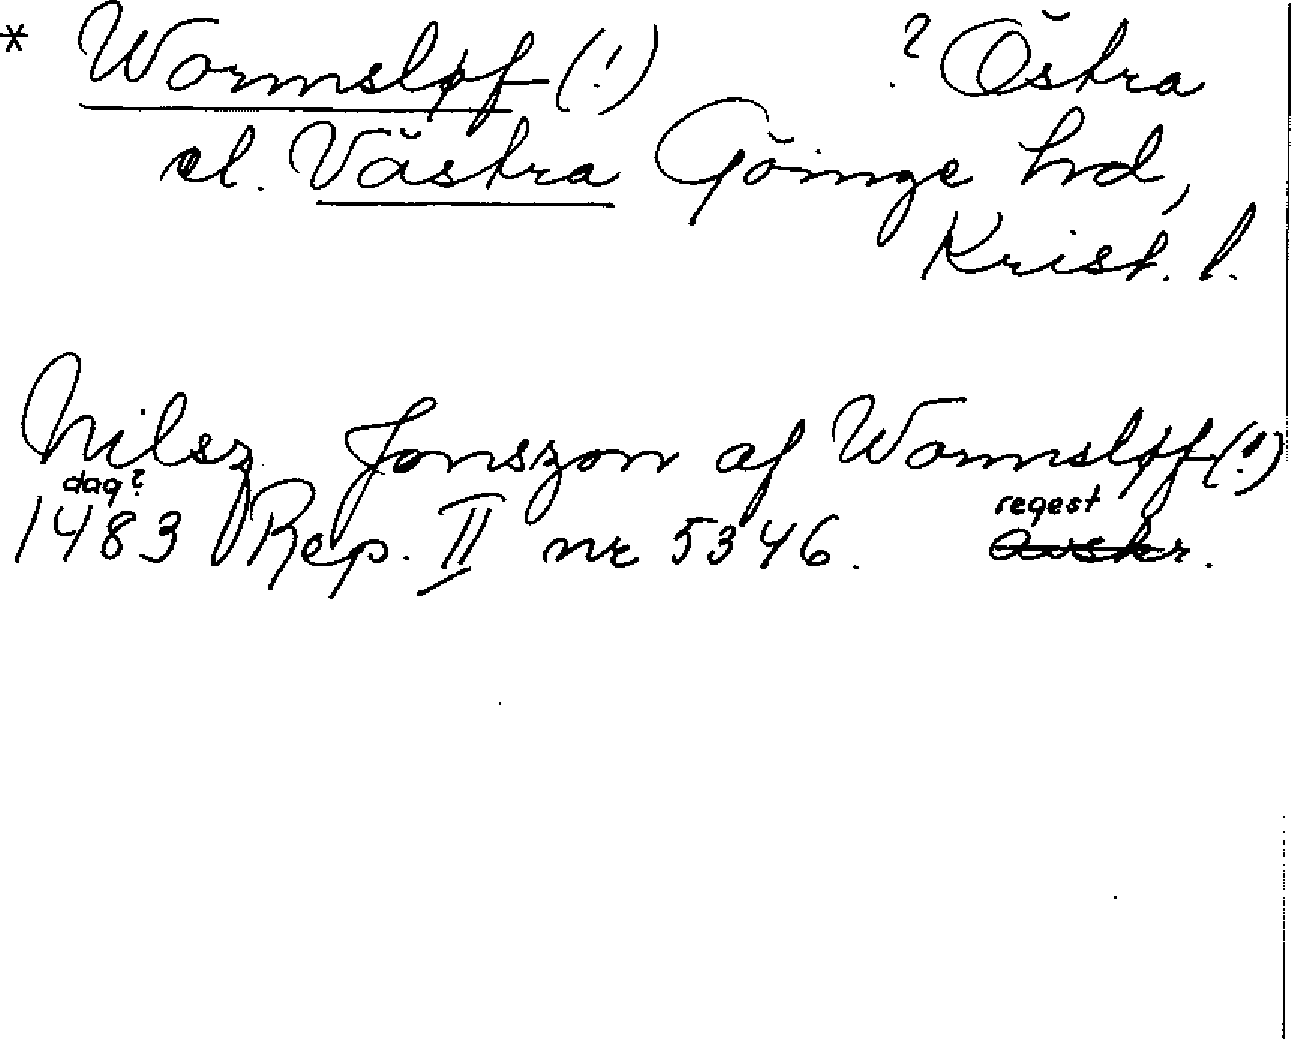 * Wormsløf (!) ? Östra
el. Västra Göinge hd,
Krist. l.
Nilsz Jonszon af Wormsløf (!)
dag? regest
1483 Rep. II nr 5346. avskr.